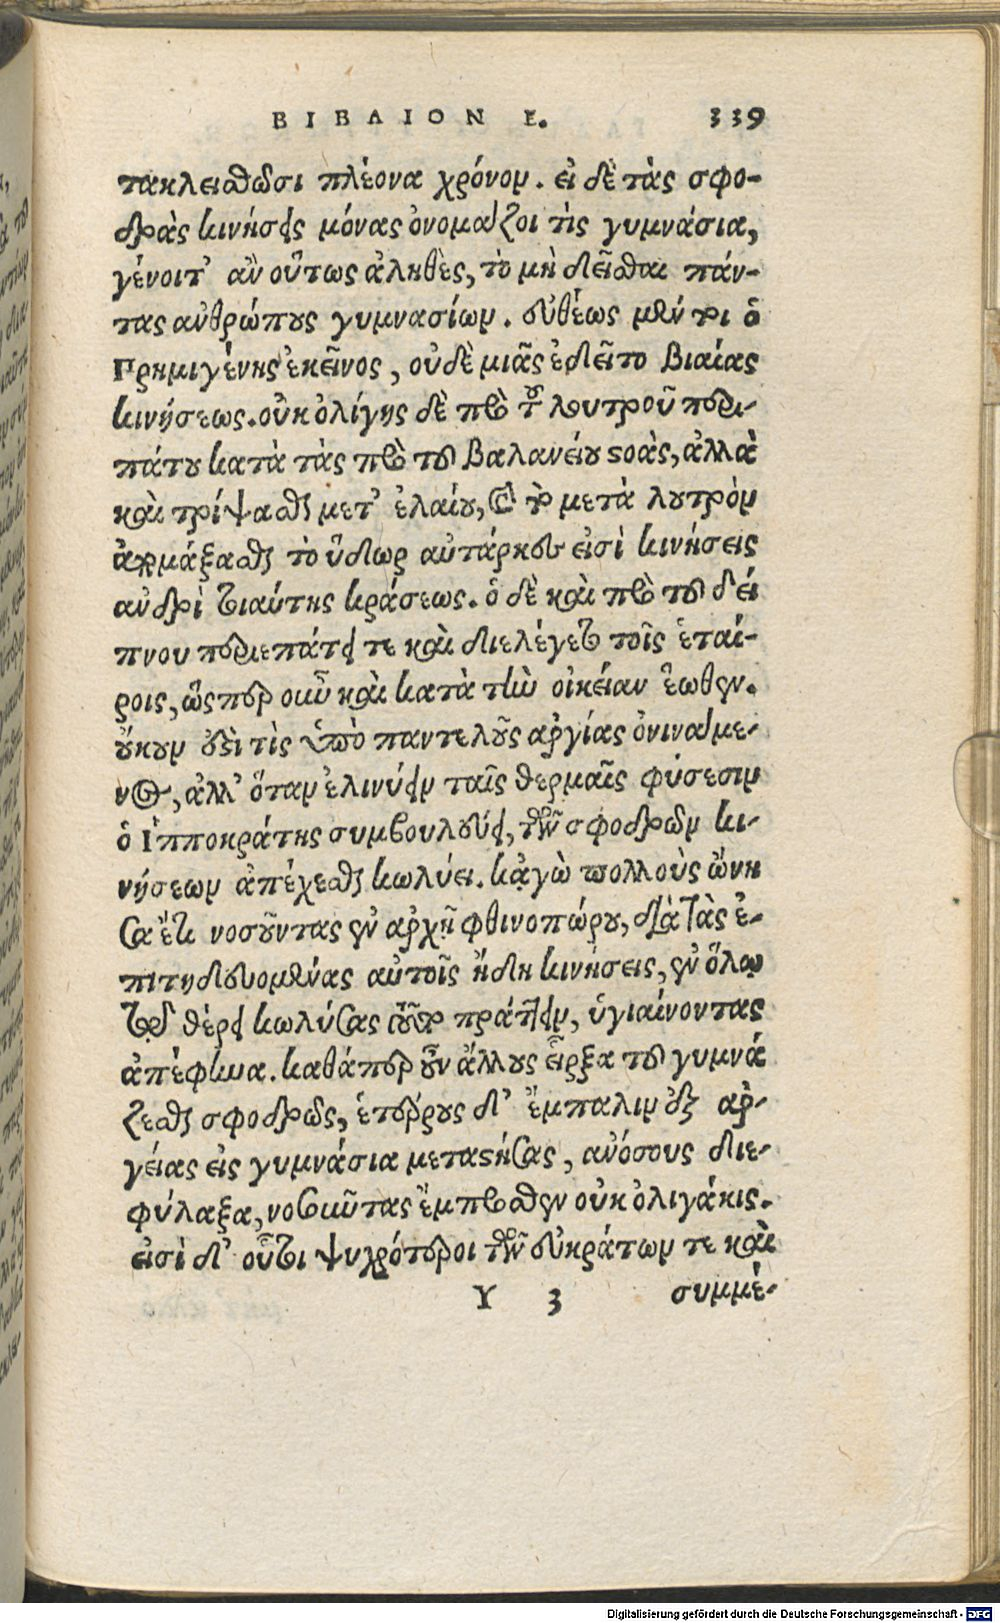 ΒΙΒΛΙΟΝ Ε. 339
τακλεισθῶσι πλέονα χρόνον. εἰ δὲ τὰς σφο-
δρὰς κινήσεις μόνας ὀνομάζοι τὶς γυμνάσια,
γένοιτ᾽ ἂν οὕτως ἀληθὲς, τὸ μὴ δεῖσθαι πάν-
τας ἀνθρώπους γυμνασίων. εὐθέως μέντοι ὁ
Πρημιγένης ἐκεῖνος, οὐδὲ μιᾶς ἐδεῖτο βιαίας
κινήσεως. οὐκ ὀλίγης δὲ πρὸ τοῦ λουτροῦ περι-
πάτου κατὰ τὰς πρὸ τοῦ βαλανείου στοὰς, ἀλλὰ
καὶ τρίψασθαι μετ᾽ ἐλαίου, καὶ τὸ μετὰ λουτρὸν
ἀπομάξασθαι τὸ ὕδωρ αὐτάρκεις εἰσὶ κινήσεις
ἀνδρὶ τοιαύτης κράσεως. ὁ δὲ καὶ πρὸ τοῦ δεί
πνου περιεπάτει τε καὶ διελέγετο τοῖς ἑταί-
ροις, ὥσπερ οὖν καὶ κατὰ τὴν οἰκείαν ἕωθεν.
οὔκουν ἐστὶ τὶς ὑπὸ παντελοῦς ἀργίας ὀνινάμε-
νος, ἀλλ᾽ ὅταν ἐλινύειν ταῖς θερμαῖς φύσεσιν
ὁ Ἱπποκράτης συμβουλεύει, τῶν σφοδρῶν κι-
νήσεων ἀπέχεσθαι κωλύει. κἀγὼ πολλοὺς ὤνη
σα ἔτι νοσοῦντας ἐν ἀρχῇ φθινοπώρου, διὰ τὰς ἐ-
πιτηδευομένας αὐτοῖς ἤδη κινήσεις, ἐν ὅλῳ
τῷ θέρει κωλύσας οὕτω πράττειν, ὑγιαίνοντας
ἀπέφηνα. καθάπερ οὖν ἄλλους εἶρξα τοῦ γυμνά
ζεσθαι σφοδρῶς, ἑτέρους δ᾽ ἔμπαλιν ἐξ ἀρ-
γείας εἰς γυμνάσια μεταστήσας, ἀνόσους διε-
φύλαξα, νοσοῦντας ἔμπροσθεν οὐκ ὀλιγάκις.
εἰσὶ δ᾽ οὗτοι ψυχρότεροι τῶν εὐκράτων τε καὶ
Υ 3 συμμέ-
Digitalisierung gefördert durch die Deutsche Forschungsgemeinschaft - DFG